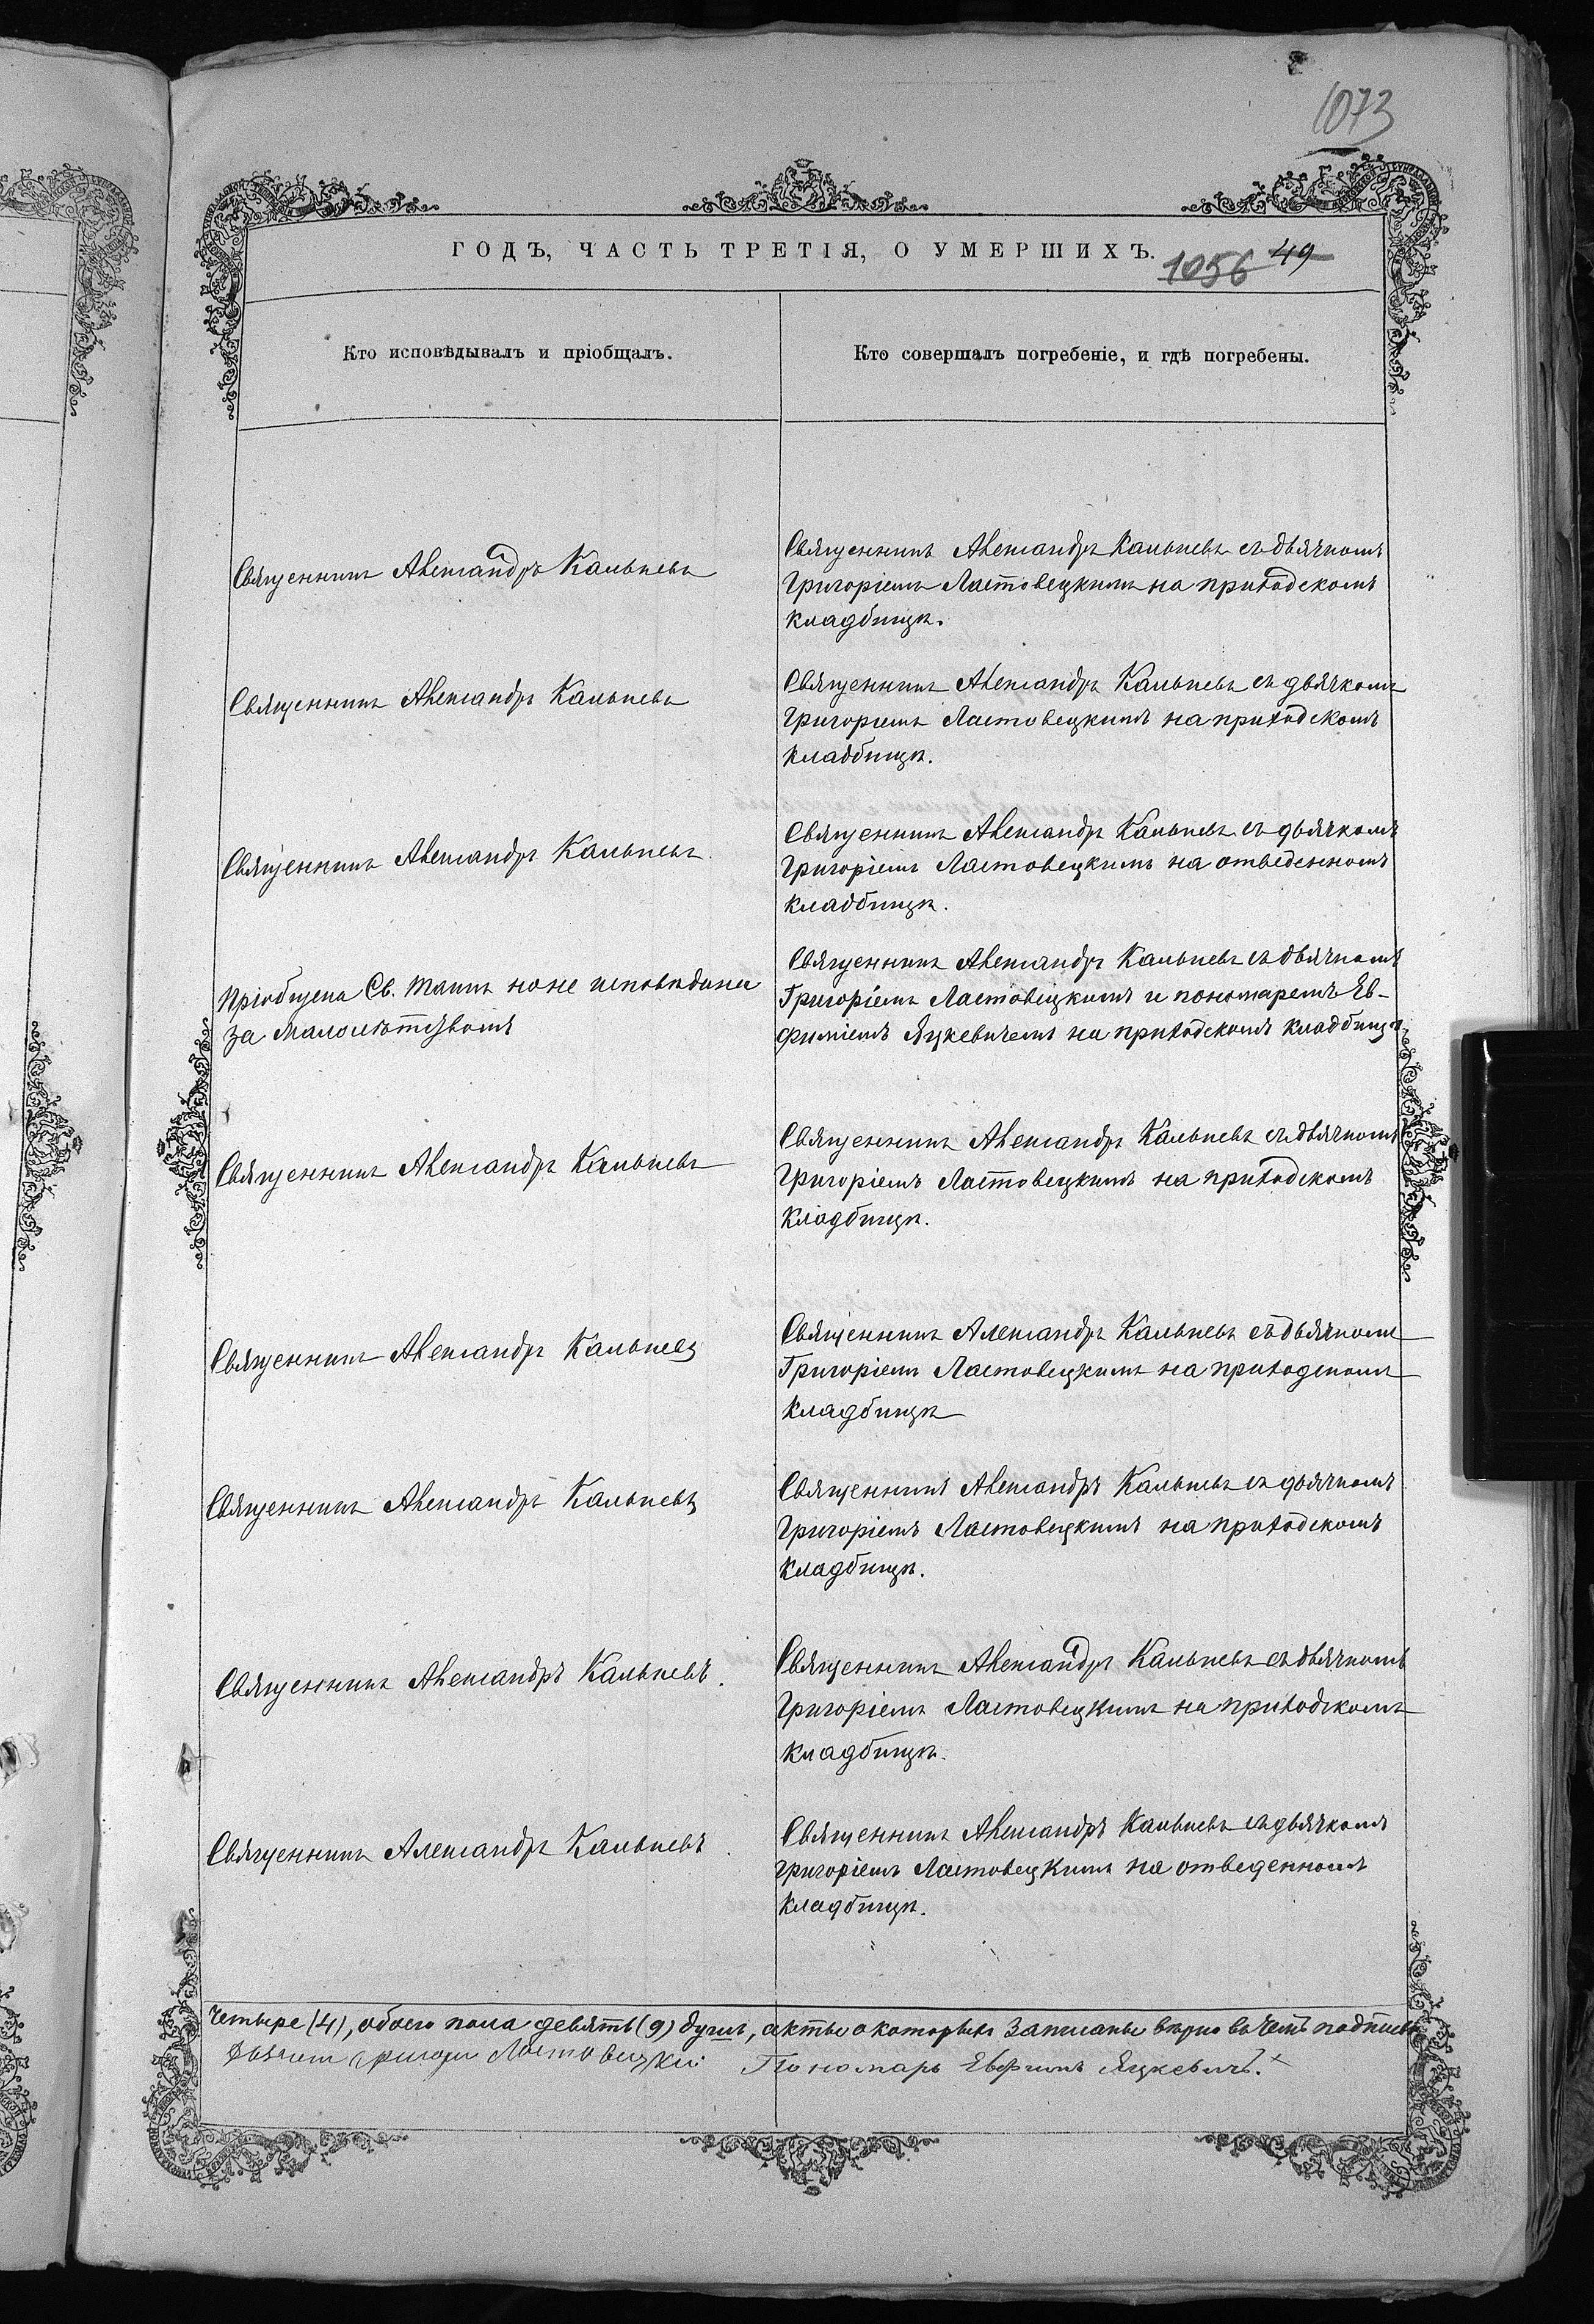 1073
ГОДЪ, ЧАСТЬ ТРЕТІЯ, О УМЕРШИХЪ.
1056 49
Кто исповѣдывалъ и пріобщалъ.
Кто совершалъ погребеніе, и гдѣ погребены.
Священникъ Александръ Кальневъ
Священникъ Александръ Кальневъ съ дьячкомъ
Григоріемъ Ластовецкимъ на приходскомъ
кладбищѣ.
Священникъ Александръ Кальневъ
Священникъ Александръ Кальневъ съ дьячкомъ
Григоріемъ Ластовецкимъ на приходскомъ
кладбищѣ.
Священникъ Александръ Кальневъ.
Священникъ Александръ Кальневъ съ дьячкомъ
Григоріемъ Ластовецкимъ на отведенномъ
кладбищѣ.
Пріобщена Св. Таинъ но не исповѣдана
за малолѣтствомъ
Священникъ Александръ Кальневъ съ дьячкомъ
Григоріемъ Ластовецкимъ и пономаремъ Ев-
фиміемъ Яцкевичемъ на приходскомъ кладбищѣ
Священникъ Александръ Кальневъ
Священникъ Александръ Кальневъ съ дьячкомъ
Григоріемъ Ластовецкимъ на приходскомъ
кладбищѣ.
Священникъ Александръ Кальневъ
Священникъ Александръ Кальневъ съ дьячкомъ
Григоріемъ Ластовецкимъ на приходскомъ
кладбищѣ
Священникъ Александръ Кальневъ
Священникъ Александръ Кальневъ съ дьячкомъ
Григоріемъ Ластовецкимъ на приходскомъ
кладбищѣ.
Священникъ Александръ Кальневъ.
Священникъ Александръ Кальневъ съ дьячкомъ
Григоріемъ Ластовецкимъ на приходскомъ
кладбищѣ.
Священникъ Александръ Кальневъ.
Священникъ Александръ Кальневъ съ дьячкомъ
Григоріемъ Ластовецкимъ на отведенномъ
кладбищѣ.
Четыре (4), обоего пола девять (9) душъ, акты о которыхъ записаны вѣрно въ чемъ подписью
Григорій Ластовецкій Пономарь Евфимъ Яцкевичъ.